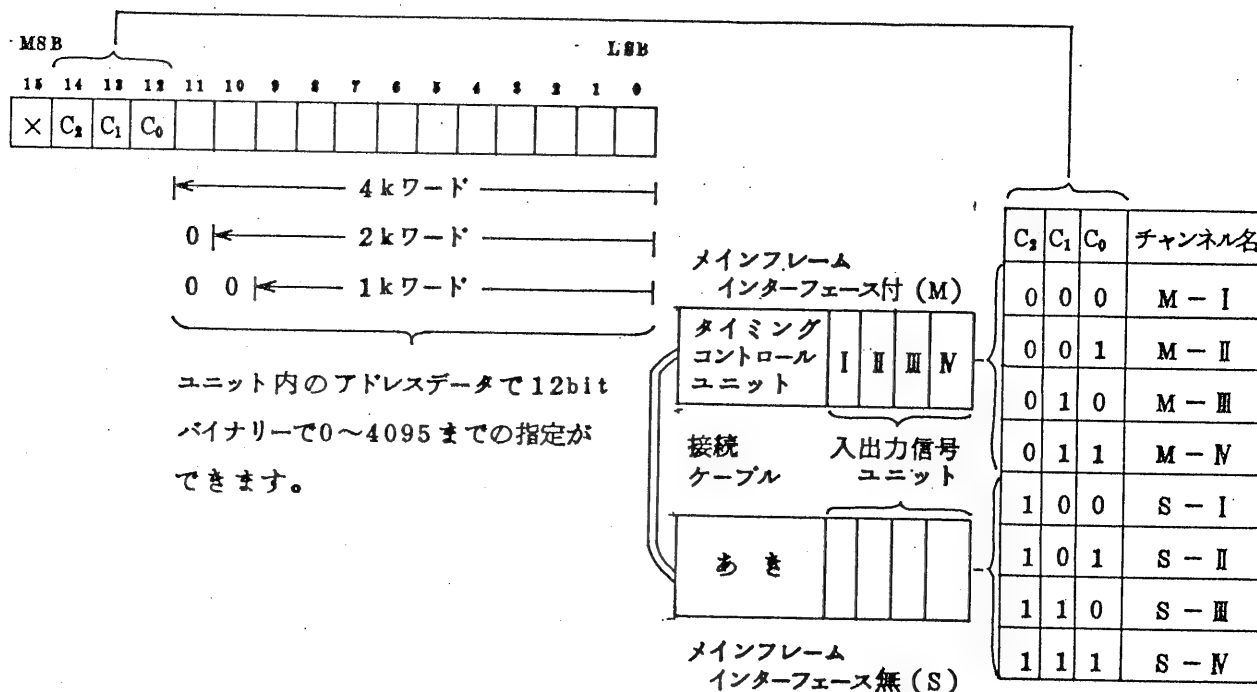 MSB LSB
15 14 13 12 11 10 9 8 7 6 5 4 3 2 1 0
× C₂ C₁ C₀
4kワード
0 2kワード
0 0 1kワード
ユニット内のアドレスデータで12bit
バイナリーで0～4095までの指定が
できます。
メインフレーム
インターフェース付(M)
タイミング
コントロール
ユニット
Ⅰ Ⅱ Ⅲ Ⅳ
接続
ケーブル
入出力信号
ユニット
あき
メインフレーム
インターフェース無(S)
C₂ C₁ C₀ チャンネル名
0 0 0 M－Ⅰ
0 0 1 M－Ⅱ
0 1 0 M－Ⅲ
0 1 1 M－Ⅳ
1 0 0 S－Ⅰ
1 0 1 S－Ⅱ
1 1 0 S－Ⅲ
1 1 1 S－Ⅳ